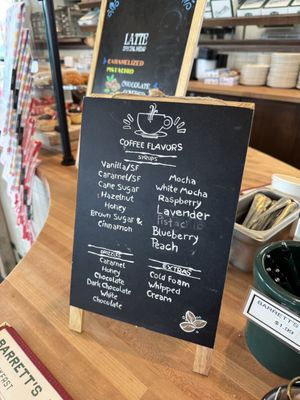 LATTE
SPECIAL MENU
CARAMELIZED
PISTACHIO
CHOCOLATE
COFFEE FLAVORS
SYRUPS
Vanilla/SF
Caramel/SF
Cane Sugar
Hazelnut
Honey
Brown Sugar &
Cinnamon
Mocha
White Mocha
Raspberry
Lavender
Pistachio
Blueberry
Peach
Caramel
Honey
Chocolate
Dark Chocolate
White
Chocolate
EXTRAS
Cold Foam
Whipped
Cream
BARRETT'S
$1.99
BARRETT'S
BREAKFAST